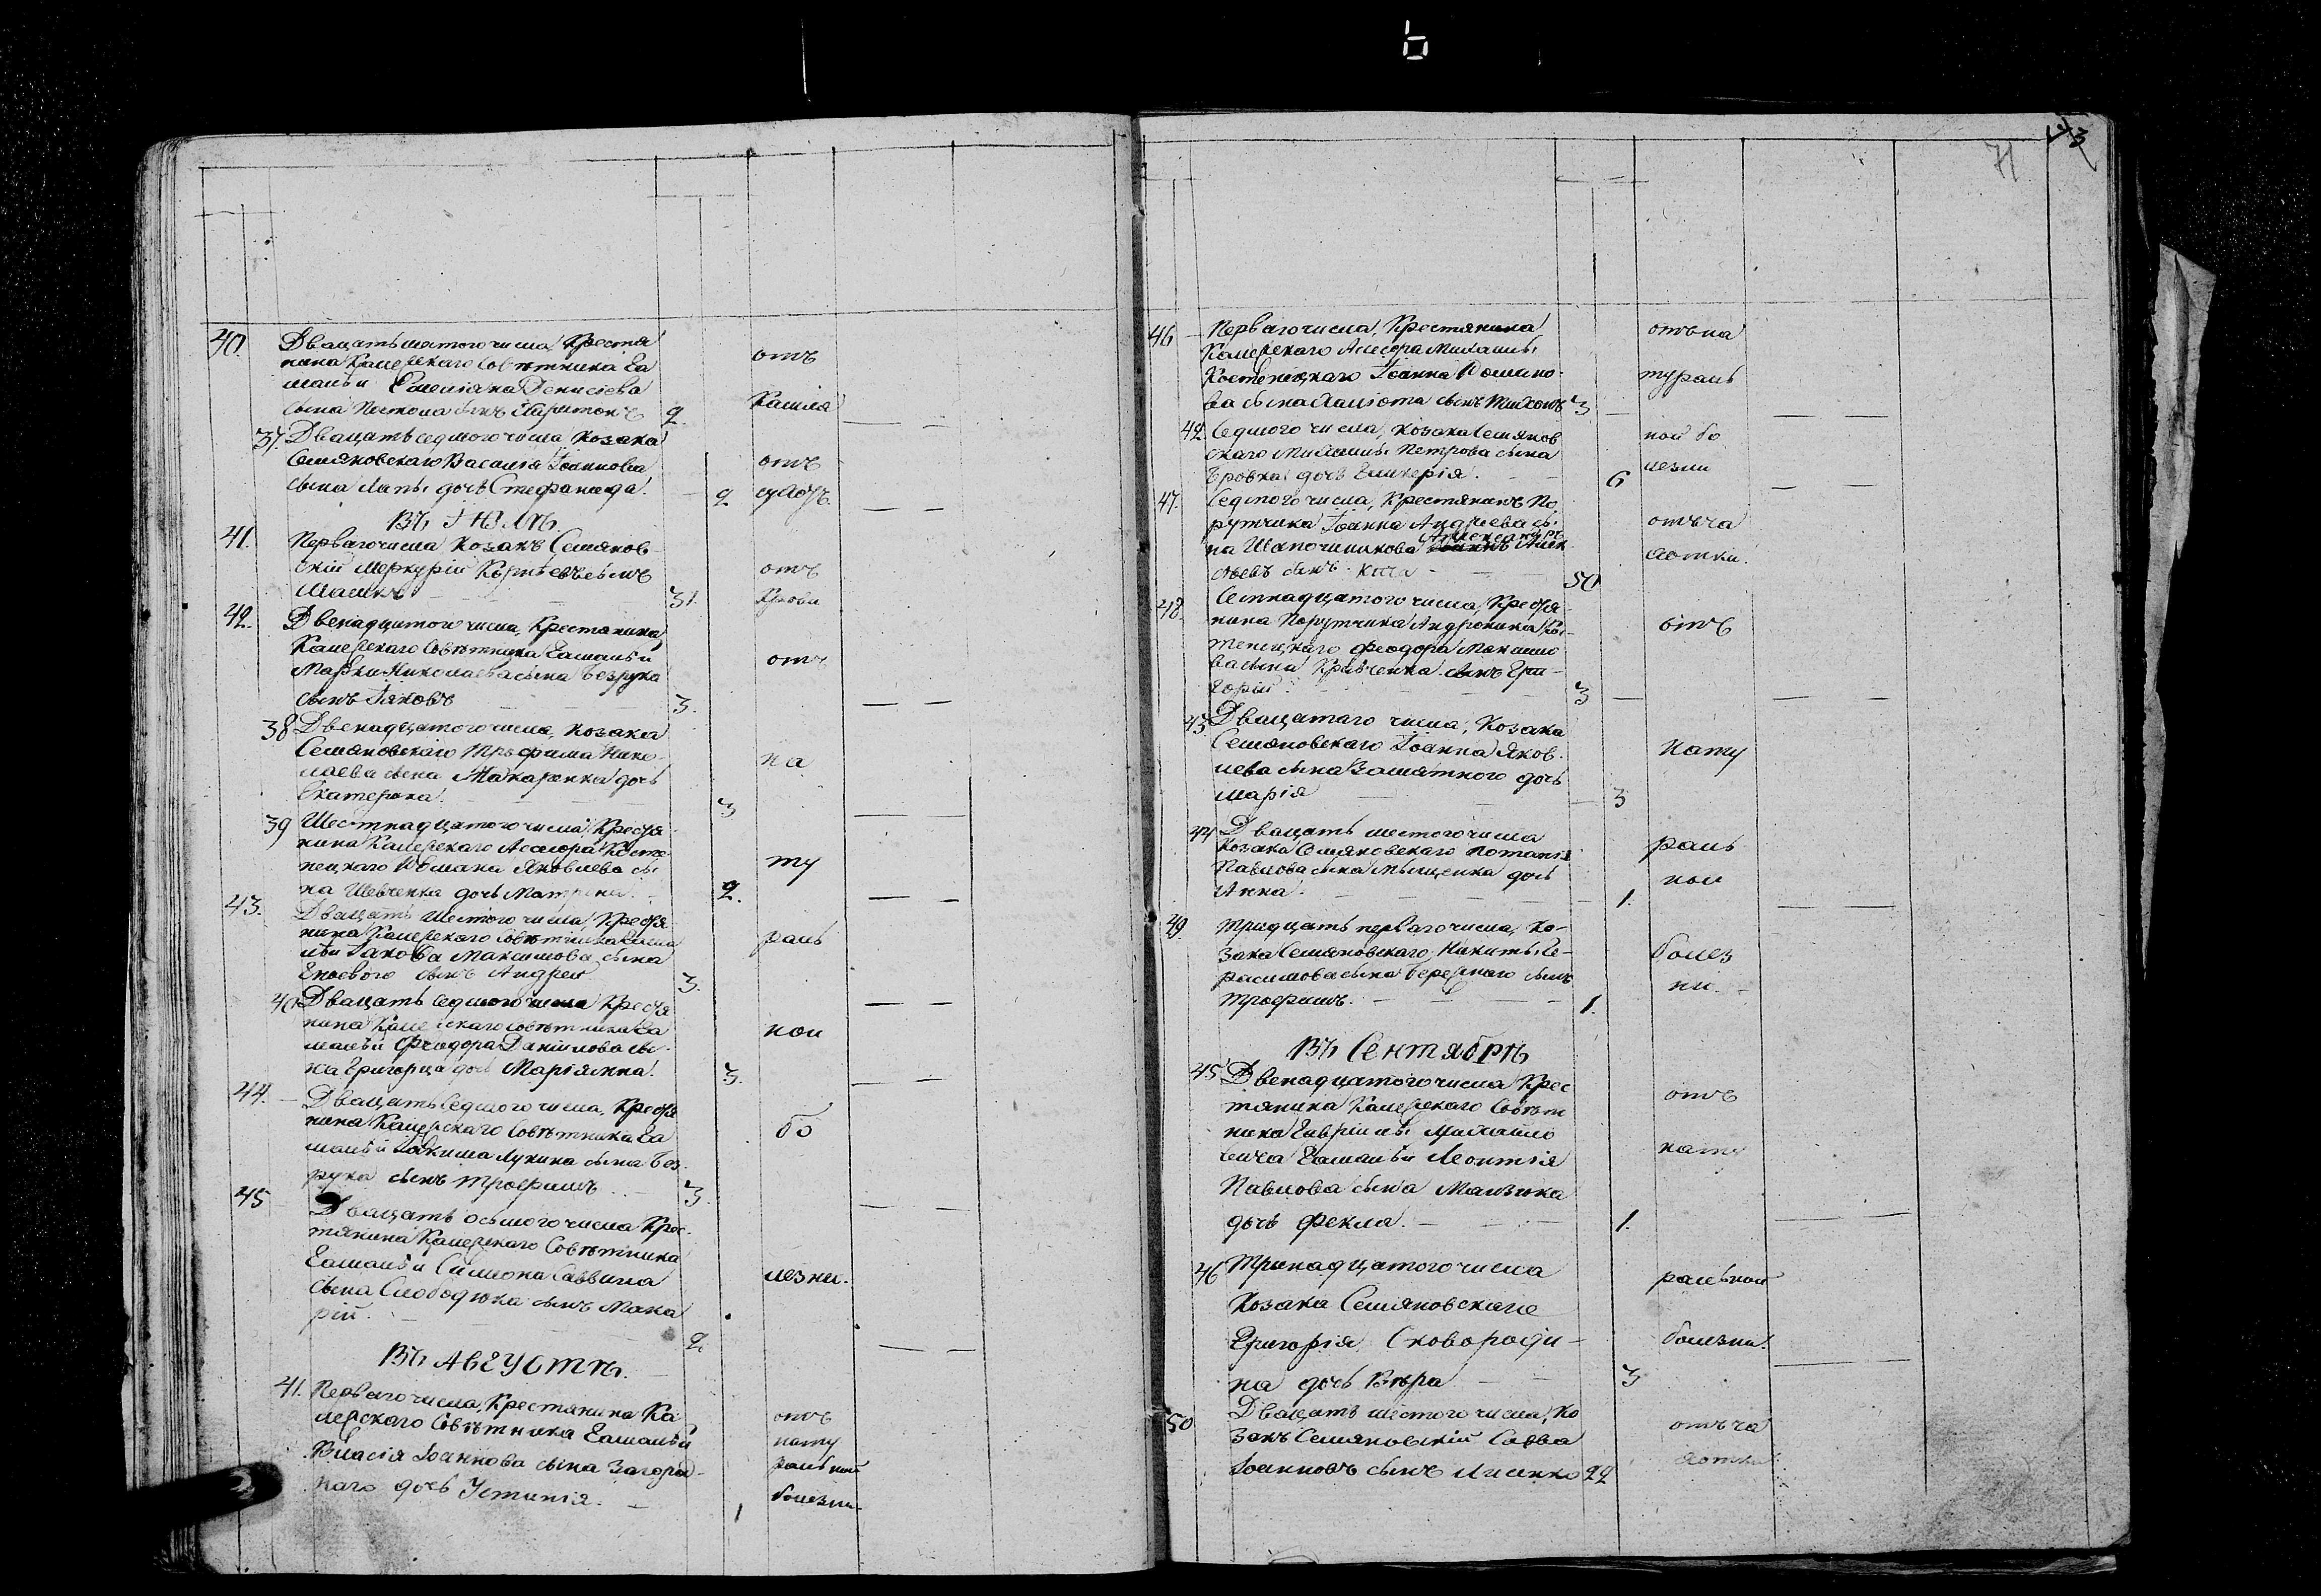 40. Двацать шестого числа, Крестя
нина Камерскаго Совѣтника Га
малѣи Емелiяна Денисiева
сына сынъ Харитонъ 2.
отъ
Кашля
37. Двацать седмого числа, Козака
Семяновскаго Василiя Iоаннова
сына Лапы дочь Стефанида. 2
отъ
Въ Iюлѣ.
41. Перваго числа, Козакъ Семянов
скiй Меркурiй сынъ
31.
отъ
42. Двенадцятого числа, Крестянина
Камерскаго Совѣтника Гамалѣи
Марка Николаева сына Безрука
сынъ Iяковъ 3.
отъ
38 Двенадцятого числа, Козака
Семяновскаго Трофима Нико
лаева сына Макаренка дочь
Екатерина. 3
на
39 Шестнадцятого числа, Крестя
нина Камерскаго Ассесора Косте
нецкаго Романа Яковлева сы
на Шевченка дочь Матрена. 2.
ту
43. Двацать шестого числа, Крестя
нина Камерскаго Совѣтника Гама
лѣи Iакова Максимова сына
сынъ Андрей 3.
раль
40 Двацать седмого числа Крестя
нина Камерскаго Совѣтника Га
малѣи Феодора Данiилова сы
на Григорца дочь Марiянна. 3.
ной
44. Двацать седмого числа, Крестя
нина Камерскаго Совѣтника Га
малѣи Iоакима Лукина сына Без
рука сынъ Трофимъ 3.
бо
45 Двацать осмого числа Крес
тянина Камерскаго Совѣтника
Гамалѣи Симеона Саввина
сына Слободюка сынъ Мака
рiй. 2
лезни.
Въ Августѣ.
41. Перваго числа, Крестянина Ка
мерскаго Совѣтника Гамалѣи
Власiя Iоаннова сына Загород
наго дочь Устинiя. 1
отъ
нату
ральной
болезни
71
46 Перваго числа, Крестянина
Камерскаго Ассесора Михаила
Костенецкаго Iоанна Романо
ва сына сынъ Тихонъ 3
отъ на
тураль
42. Седмого числа, Козака Семянов
скаго Михаила Петрова сына
Бровка дочь Гликерiя. 6
ной бо
лезни
47. Седмого числа, Крестянинъ По
рутчика Iоанна Андреева сы
на Шапошникова Александръ
сынъ 50
отъ ча
хотки.
48. Семнадцятого числа, Крестя
нина Порутчика Андроника Кос
тенецкаго Феодора Максимо
ва сына Кравченка сынъ Гри
горiй 3
отъ
43 Двацатаго числа, Козака
Семяновскаго Iоанна Яков
лева сына дочь
Марiя 3
нату
44 Двацать шестого числа
Козака Семяновскаго Потапiя
Павлова сына дочь
Анна. 1.
раль
ной
49. Тридцать перваго числа, Ко
зака Семяновскаго Никиты Ге
расимова сына Бережнаго сынъ
Трофимъ. 1.
болез
ни.
Въ Сентябрѣ
45 Двенадцятого числа Крес
тянина Камерскаго Совѣт
ника Гаврiила Михайло
вича Гамалѣи Леонтiя
Павлова сына
дочь Фекла. 1.
отъ
нату
46 Тринадцятого числа
Козака Семяновскаго
Григорiя Сковороди
на дочь Вѣра 3
ральной
болезни.
50 Двацать шестого числа, Ко
закъ Семяновскiй Савва
Iоанновъ сынъ Лисенко 22
отъ ча
хотки